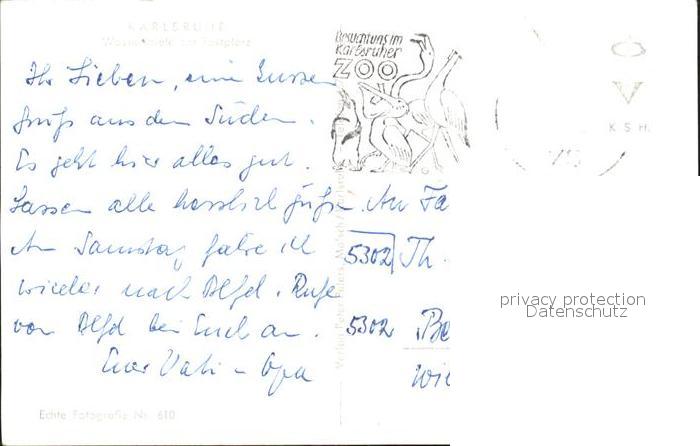 KARLSRUHE
Wasserspiele am Festplatz
Besuch uns im
Karlsruher
ZOO
K S H.
Ihr Lieben, einen
Gruß aus dem Süden.
Es geht hier alles gut.
Lassen alle herzlich grüßen. An Fa
Am Samstag fahre ich
5302 Th.
wieder nach Alfd. Rufe
von Alfd bei Euch an.
5302 Be
Euer Vati - Opa
Wie
privacy protection
Datenschutz
Echte Fotografie Nr. 610